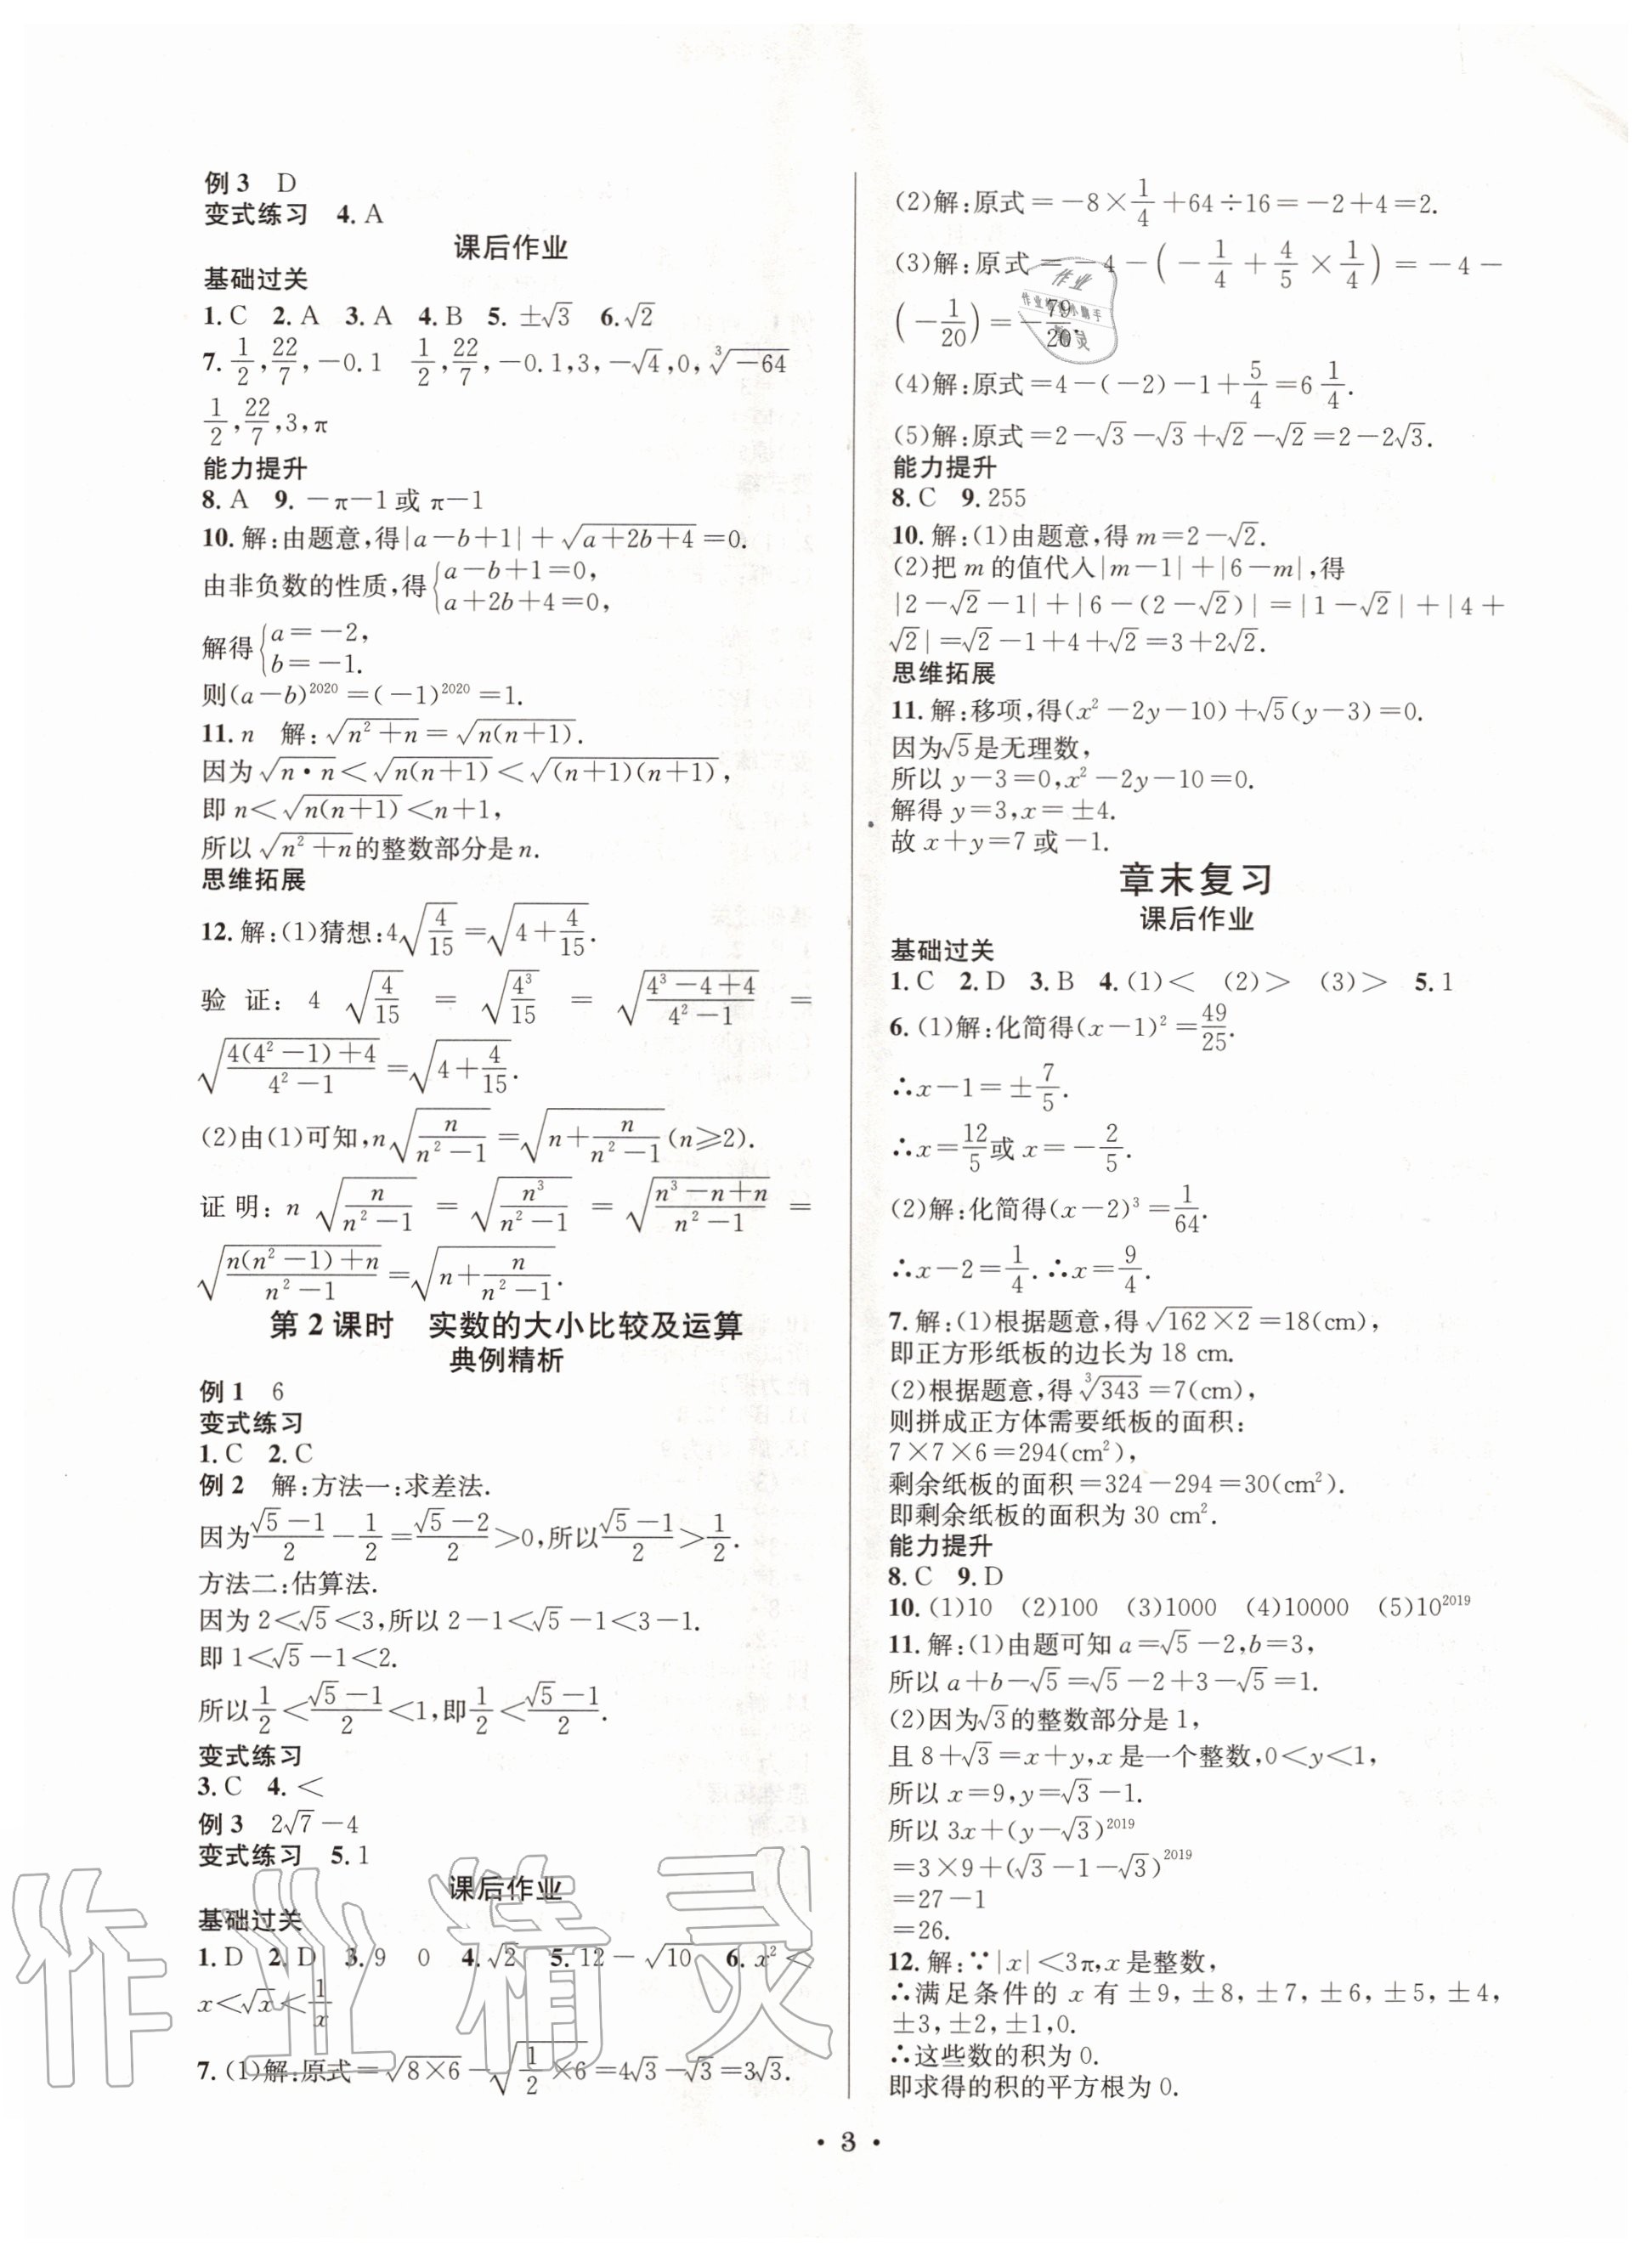 例3 D
变式练习 4. A
课后作业
基础过关
1. C 2. A 3. A 4. B 5. ±√3 6. √2
7. 1/2, 22/7, -0.1 1/2, 22/7, -0.1, 3, -√4, 0, ∛(-64)
1/2, 22/7, 3, π
能力提升
8. A 9. -π-1 或 π-1
10. 解:由题意,得|a-b+1|+√(a+2b+4)=0.
由非负数的性质,得{a-b+1=0,
a+2b+4=0,
解得{a=-2,
b=-1.
则(a-b)²⁰²⁰=(-1)²⁰²⁰=1.
11. n 解:√(n²+n)=√(n(n+1)).
因为√(n·n)<√(n(n+1))<√((n+1)(n+1)),
即 n<√(n(n+1))<n+1,
所以√(n²+n)的整数部分是 n.
思维拓展
12. 解:(1)猜想:4√(4/15)=√(4+4/15).
验证: 4√(4/15) = √(4³/15) = √((4³-4+4)/(4²-1)) =
√((4(4²-1)+4)/(4²-1))=√(4+4/15).
(2)由(1)可知,n√(n/(n²-1))=√(n+n/(n²-1))(n≥2).
证明: n√(n/(n²-1)) = √(n³/(n²-1)) = √((n³-n+n)/(n²-1)) =
√((n(n²-1)+n)/(n²-1))=√(n+n/(n²-1)).
第2课时 实数的大小比较及运算
典例精析
例1 6
变式练习
1. C 2. C
例2 解:方法一:求差法.
因为(√5-1)/2-1/2=(√5-2)/2>0,所以(√5-1)/2>1/2.
方法二:估算法.
因为 2<√5<3,所以 2-1<√5-1<3-1.
即 1<√5-1<2.
所以1/2<(√5-1)/2<1,即1/2<(√5-1)/2.
变式练习
3. C 4. <
例3 2√7-4
变式练习 5. 1
课后作业
基础过关
1. D 2. D 3. 9 0 4. √2 5. 12-√10 6. x²<
x<√x<1/x
7. (1)解:原式=√(8×6)-√(1/2×6)=4√3-√3=3√3.
(2)解:原式=-8×1/4+64÷16=-2+4=2.
(3)解:原式=-4-(-1/4+4/5×1/4)=-4-
(-1/20)=-79/20.
(4)解:原式=4-(-2)-1+5/4=6 1/4.
(5)解:原式=2-√3-√3+√2-√2=2-2√3.
能力提升
8. C 9. 255
10. 解:(1)由题意,得 m=2-√2.
(2)把 m 的值代入|m-1|+|6-m|,得
|2-√2-1|+|6-(2-√2)|=|1-√2|+|4+
√2|=√2-1+4+√2=3+2√2.
思维拓展
11. 解:移项,得(x²-2y-10)+√5(y-3)=0.
因为√5是无理数,
所以 y-3=0,x²-2y-10=0.
解得 y=3,x=±4.
故 x+y=7 或-1.
章末复习
课后作业
基础过关
1. C 2. D 3. B 4. (1)< (2)> (3)> 5. 1
6. (1)解:化简得(x-1)²=49/25.
∴x-1=±7/5.
∴x=12/5或 x=-2/5.
(2)解:化简得(x-2)³=1/64.
∴x-2=1/4.∴x=9/4.
7. 解:(1)根据题意,得√(162×2)=18(cm),
即正方形纸板的边长为 18 cm.
(2)根据题意,得∛343=7(cm),
则拼成正方体需要纸板的面积:
7×7×6=294(cm²),
剩余纸板的面积=324-294=30(cm²).
即剩余纸板的面积为 30 cm².
能力提升
8. C 9. D
10. (1)10 (2)100 (3)1000 (4)10000 (5)10²⁰¹⁹
11. 解:(1)由题可知 a=√5-2,b=3,
所以 a+b-√5=√5-2+3-√5=1.
(2)因为√3的整数部分是 1,
且 8+√3=x+y,x 是一个整数,0<y<1,
所以 x=9,y=√3-1.
所以 3x+(y-√3)²⁰¹⁹
=3×9+(√3-1-√3)²⁰¹⁹
=27-1
=26.
12. 解:∵|x|<3π,x 是整数,
∴满足条件的 x 有±9,±8,±7,±6,±5,±4,
±3,±2,±1,0.
∴这些数的积为 0.
即求得的积的平方根为 0.
· 3 ·
作业精灵